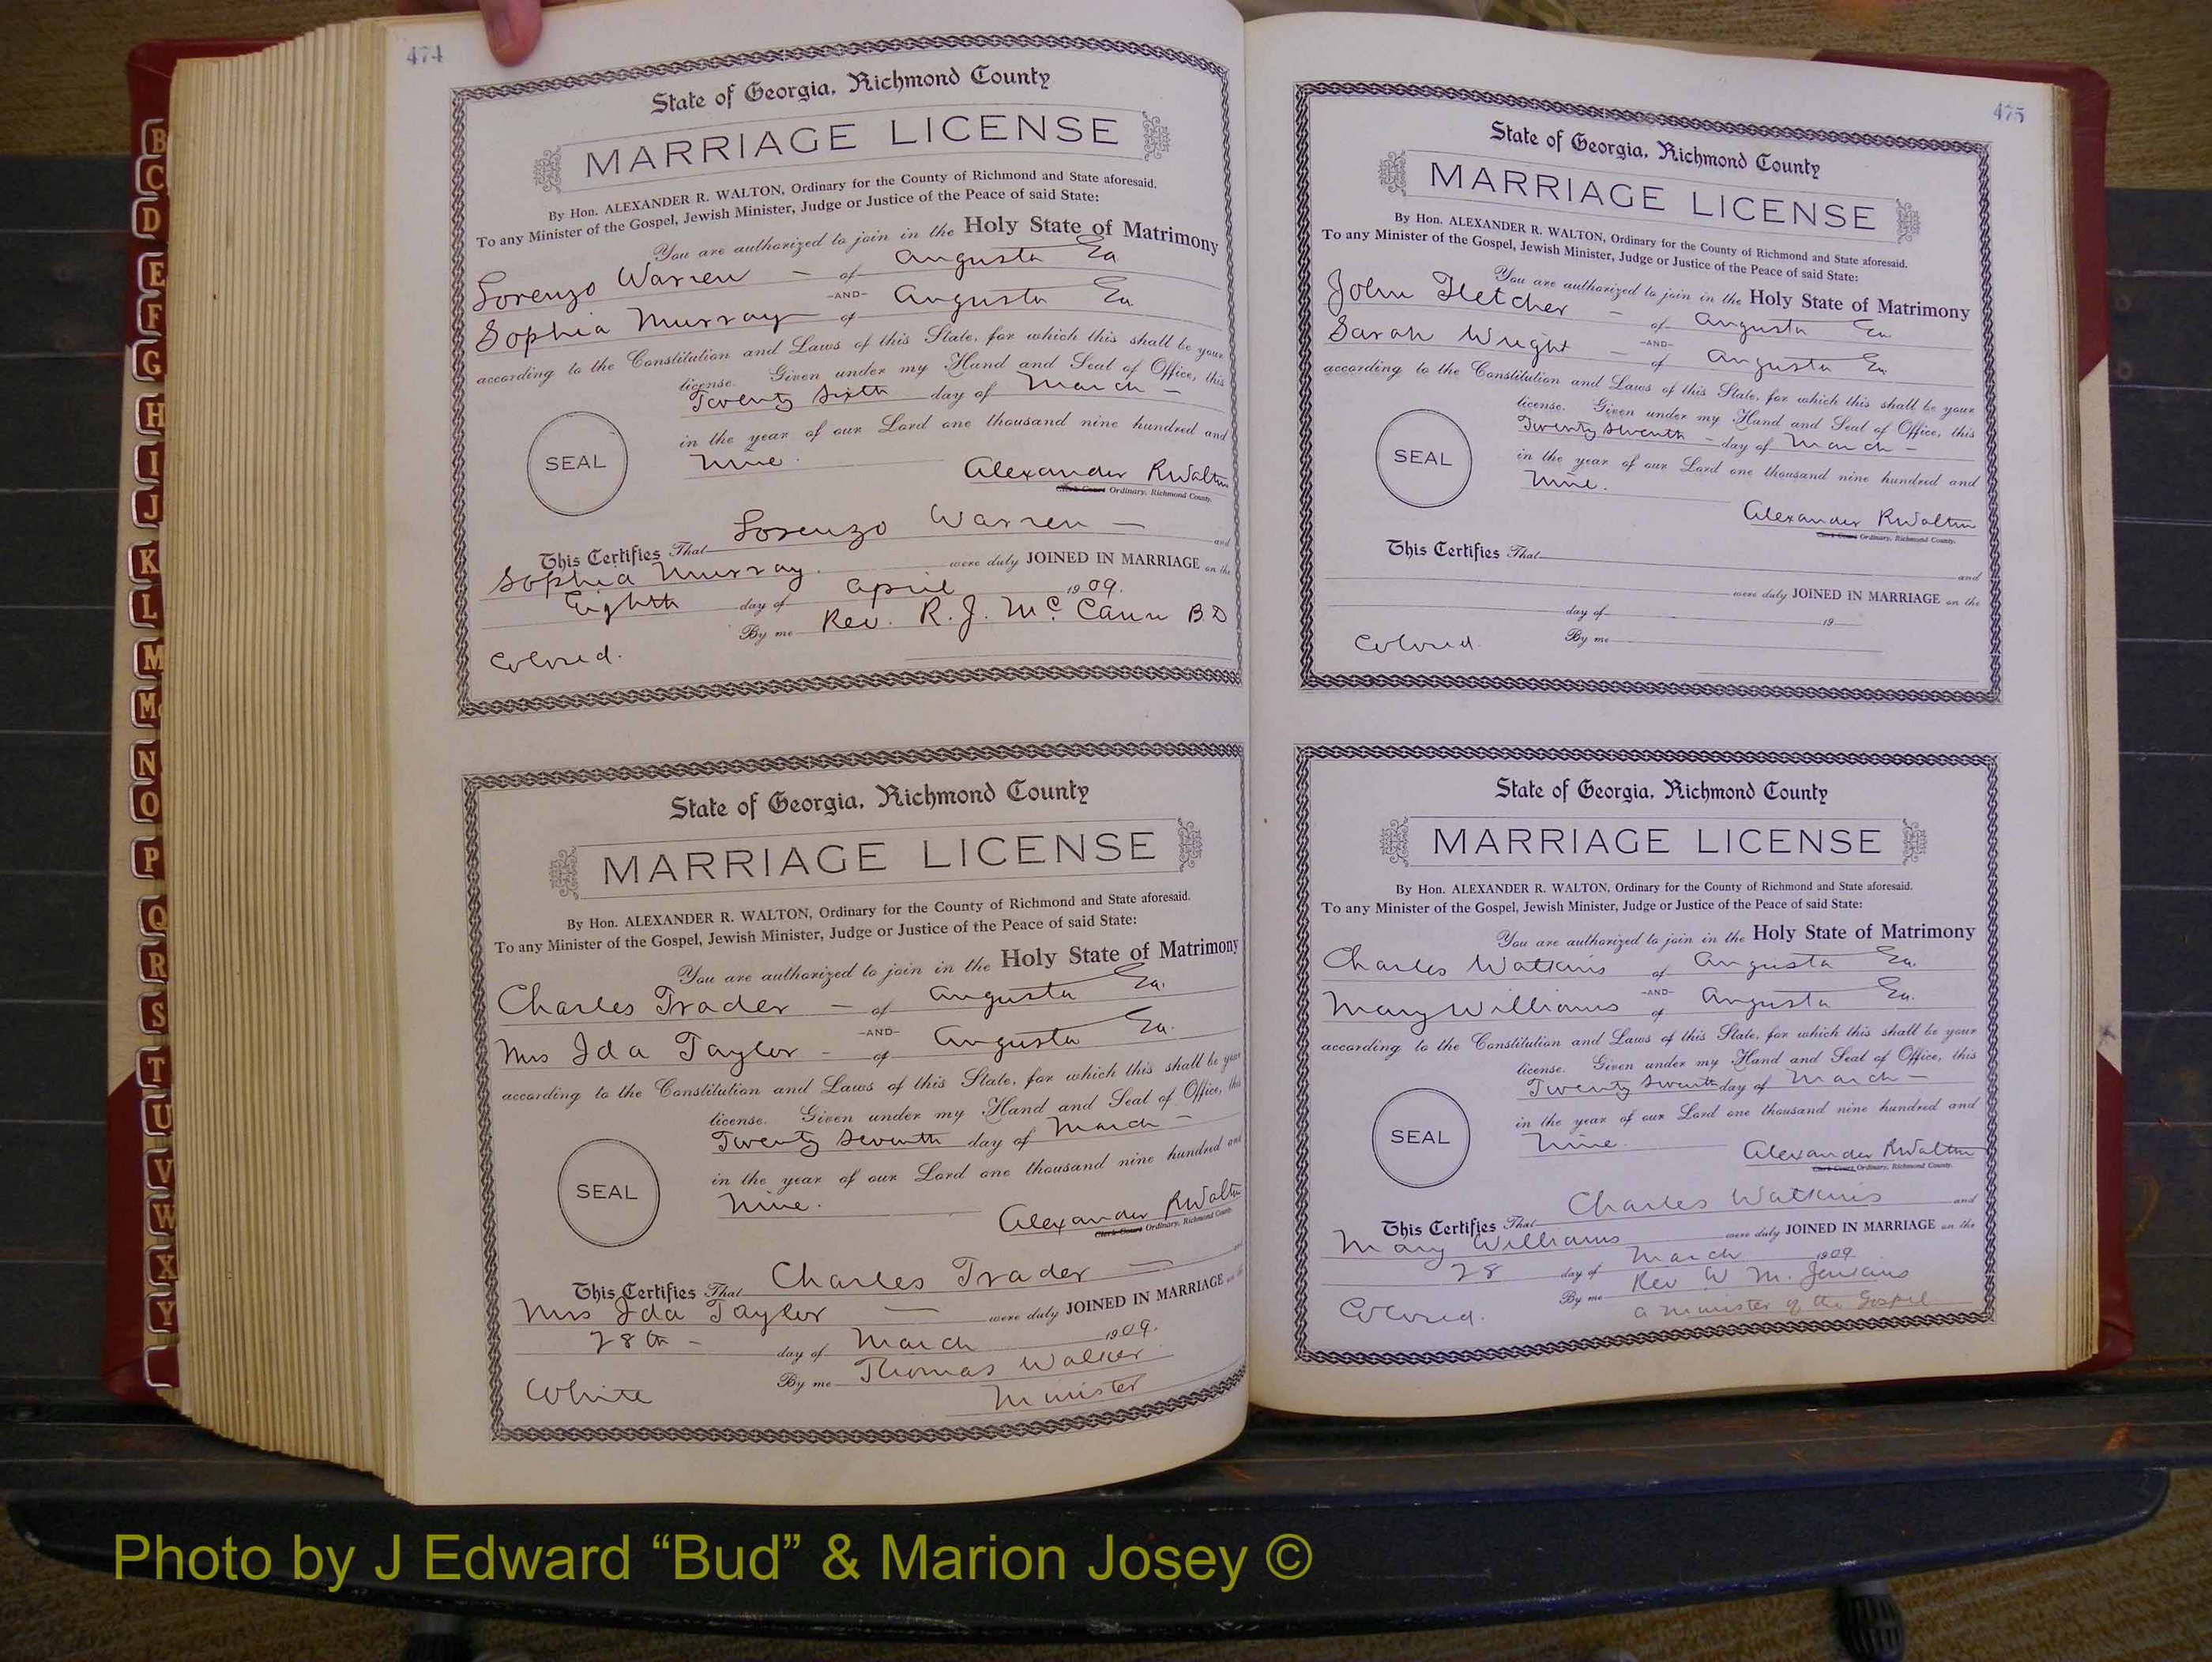 474
State of Georgia, Richmond County
MARRIAGE LICENSE
By Hon. ALEXANDER R. WALTON, Ordinary for the County of Richmond and State aforesaid.
To any Minister of the Gospel, Jewish Minister, Judge or Justice of the Peace of said State:
You are authorized to join in the Holy State of Matrimony
Lorenzo Warren - of Augusta Ga
-AND-
Sophia Murray of Augusta Ga
according to the Constitution and Laws of this State, for which this shall be your
license. Given under my Hand and Seal of Office, this
Twenty Sixth day of March -
in the year of our Lord one thousand nine hundred and
Nine.
SEAL
Alexander R Walton
Clerk Court Ordinary, Richmond County.
This Certifies That Lorenzo Warren - and
Sophia Murray. were duly JOINED IN MARRIAGE on the
Eighth day of April 1909.
By me Rev. R. J. McCann B.D
Colored.
State of Georgia, Richmond County
MARRIAGE LICENSE
By Hon. ALEXANDER R. WALTON, Ordinary for the County of Richmond and State aforesaid.
To any Minister of the Gospel, Jewish Minister, Judge or Justice of the Peace of said State:
You are authorized to join in the Holy State of Matrimony
Charles Trader - of Augusta Ga.
-AND-
Mrs Ida Taylor - of Augusta Ga.
according to the Constitution and Laws of this State, for which this shall be your
license. Given under my Hand and Seal of Office, this
Twenty Seventh day of March -
in the year of our Lord one thousand nine hundred and
Nine.
SEAL
Alexander R Walton
Clerk Court Ordinary, Richmond County.
This Certifies That Charles Trader - and
Mrs Ida Taylor - were duly JOINED IN MARRIAGE on the
28th - day of March 1909.
By me Thomas Walker
Minister
White
475
State of Georgia, Richmond County
MARRIAGE LICENSE
By Hon. ALEXANDER R. WALTON, Ordinary for the County of Richmond and State aforesaid.
To any Minister of the Gospel, Jewish Minister, Judge or Justice of the Peace of said State:
You are authorized to join in the Holy State of Matrimony
John Fletcher - of Augusta Ga
-AND-
Sarah Wright - of Augusta Ga.
according to the Constitution and Laws of this State, for which this shall be your
license. Given under my Hand and Seal of Office, this
Twenty Seventh - day of March -
in the year of our Lord one thousand nine hundred and
Nine.
SEAL
Alexander R Walton
Clerk Court Ordinary, Richmond County.
This Certifies That and
were duly JOINED IN MARRIAGE on the
day of 19
By me
Colored.
State of Georgia, Richmond County
MARRIAGE LICENSE
By Hon. ALEXANDER R. WALTON, Ordinary for the County of Richmond and State aforesaid.
To any Minister of the Gospel, Jewish Minister, Judge or Justice of the Peace of said State:
You are authorized to join in the Holy State of Matrimony
Charles Watkins of Augusta Ga.
-AND-
Mary Williams of Augusta Ga.
according to the Constitution and Laws of this State, for which this shall be your
license. Given under my Hand and Seal of Office, this
Twenty Seventh day of March -
in the year of our Lord one thousand nine hundred and
Nine.
SEAL
Alexander R Walton
Clerk Court Ordinary, Richmond County.
This Certifies That Charles Watkins and
Mary Williams were duly JOINED IN MARRIAGE on the
28 day of March 1909
By me Rev W M. Jenkins
a minister of the Gospel
Colored.
B
C
D
E
F
G
H
I
J
K
L
M
Mc
N
O
P
Q
R
S
T
U
V
W
X
Y
Photo by J Edward “Bud” & Marion Josey ©